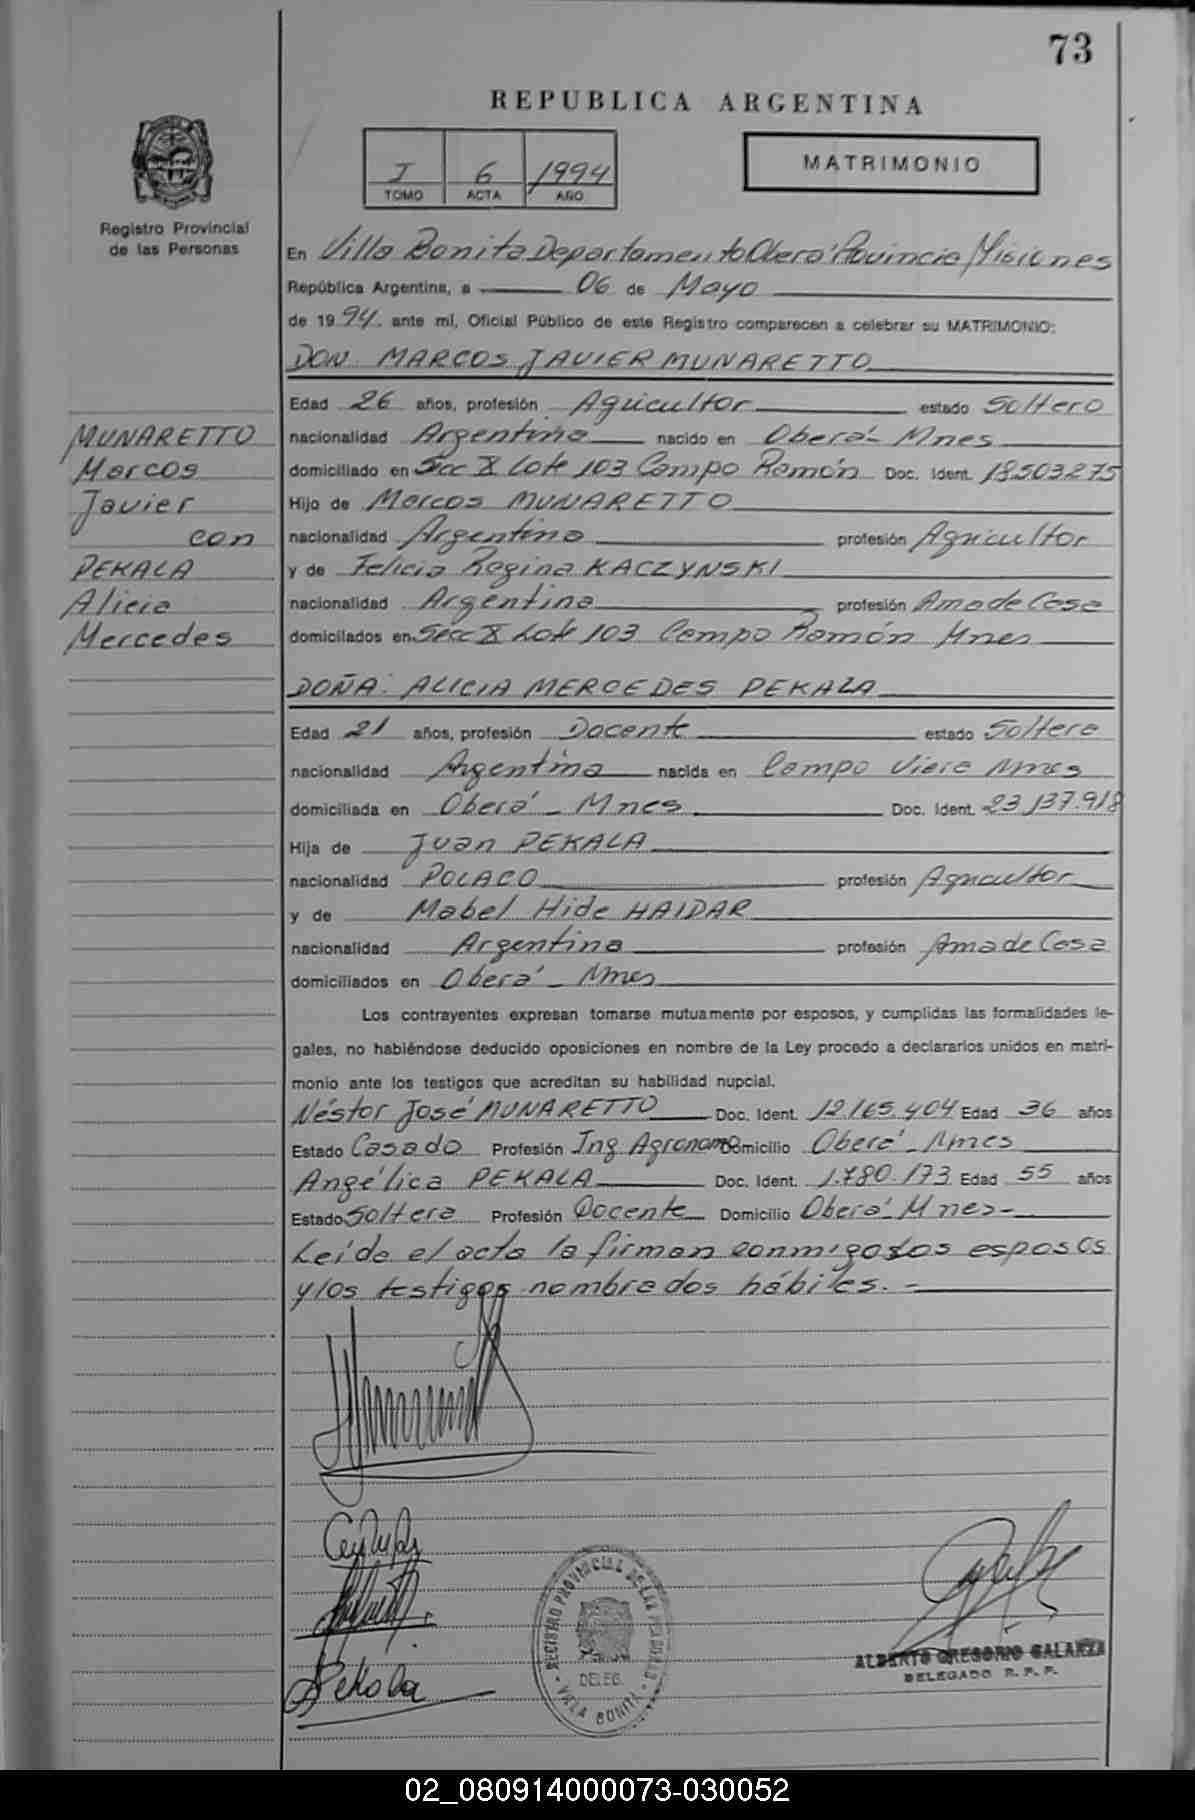 73
REPUBLICA ARGENTINA
I 6 1994
TOMO ACTA AÑO
MATRIMONIO
Registro Provincial
de las Personas
En Villa Bonita Departamento Oberá Provincia Misiones
República Argentina, a 06 de Mayo
de 1994. ante mí, Oficial Público de este Registro comparecen a celebrar su MATRIMONIO:
DON. MARCOS JAVIER MUNARETTO
Edad 26 años, profesión Agricultor estado Soltero
nacionalidad Argentina nacido en Oberá - Mnes
domiciliado en Secc X Lote 103 Campo Ramón Doc. Ident. 18.503.275
Hijo de Marcos MUNARETTO
nacionalidad Argentina profesión Agricultor
y de Felicia Regina KACZYNSKI
nacionalidad Argentina profesión Ama de Casa
domiciliados en Secc X Lote 103 Campo Ramón Mnes
MUNARETTO
Marcos
Javier
con
PEKALA
Alicia
Mercedes
DOÑA: ALICIA MERCEDES PEKALA
Edad 21 años, profesión Docente estado Soltera
nacionalidad Argentina nacida en Campo Viera Mnes
domiciliada en Oberá - Mnes Doc. Ident. 23.137.918
Hija de Juan PEKALA
nacionalidad POLACO profesión Agricultor
y de Mabel Hide HAIDAR
nacionalidad Argentina profesión Ama de Casa
domiciliados en Oberá - Mnes
Los contrayentes expresan tomarse mutuamente por esposos, y cumplidas las formalidades le-
gales, no habiéndose deducido oposiciones en nombre de la Ley procedo a declararlos unidos en matri-
monio ante los testigos que acreditan su habilidad nupcial.
Néstor José MUNARETTO Doc. Ident. 12.165.404 Edad 36 años
Estado Casado Profesión Ing Agronomo Domicilio Oberá - Mnes
Angélica PEKALA Doc. Ident. 1.780.173 Edad 55 años
Estado Soltera Profesión Docente Domicilio Oberá - Mnes -
Leída el acta la firman conmigo los esposos
y los testigos nombrados hábiles. -
Pekala
REGISTRO PROVINCIAL DE LAS PERSONAS
DELEG.
VILLA BONITA
ALBERTO GREGORIO GALARZA
DELEGADO R. P. P.
02_080914000073-030052